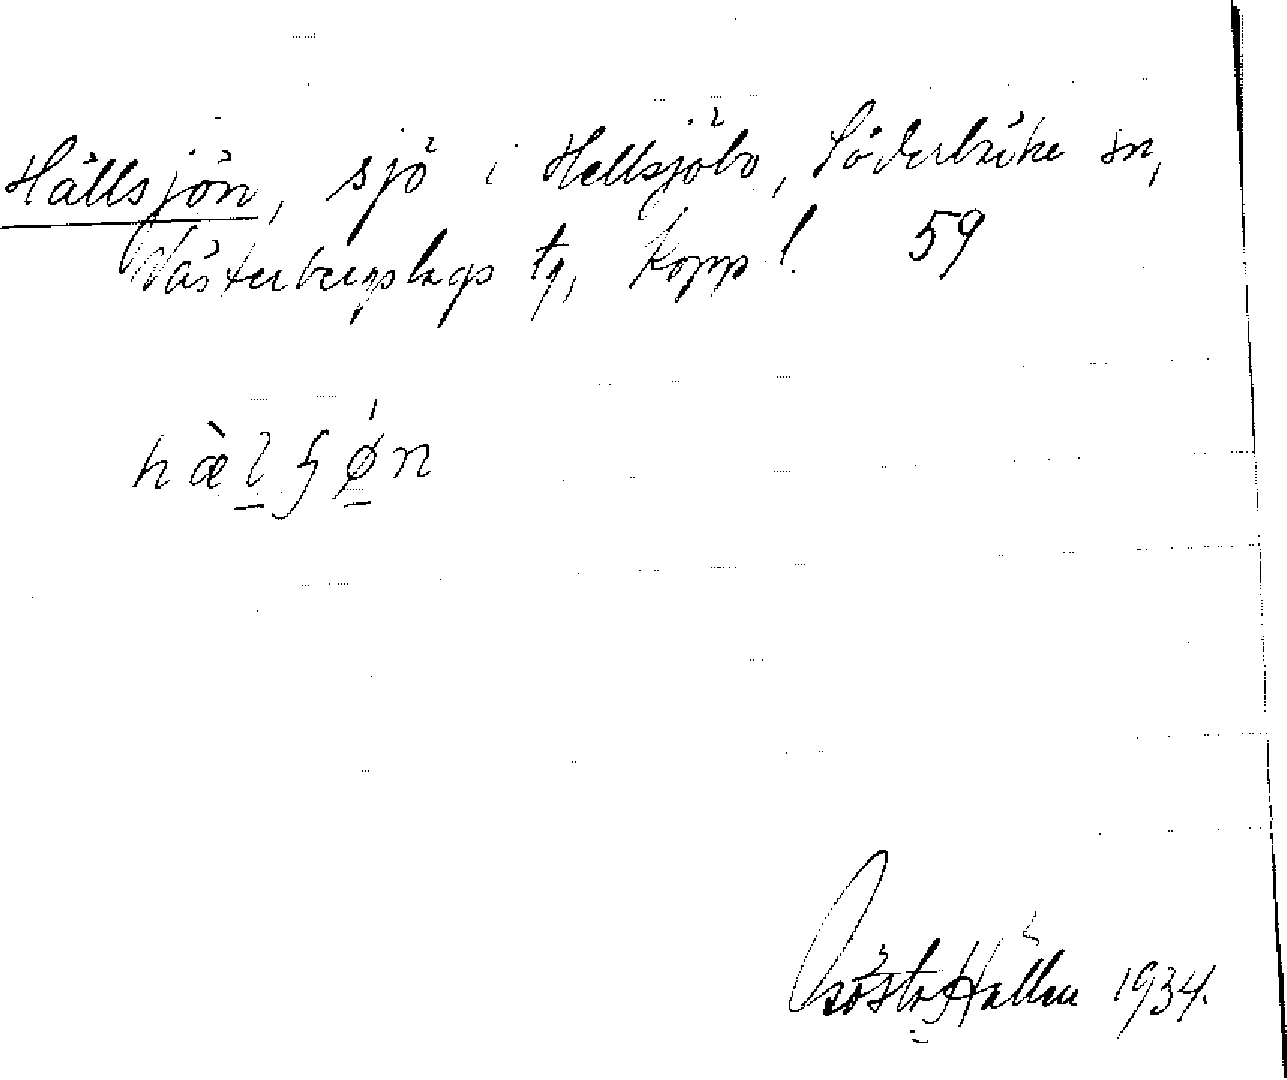 Hällsjön, sjö i Hellsjöbo, Söderbärke sn,
Västerbergslags tg, Kopp l. 59
hæ̀lʂø̀n
Gösta Hallen 1934.